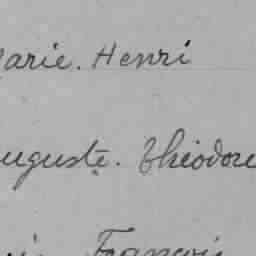 Marie. Henri
Auguste. Théodore
François